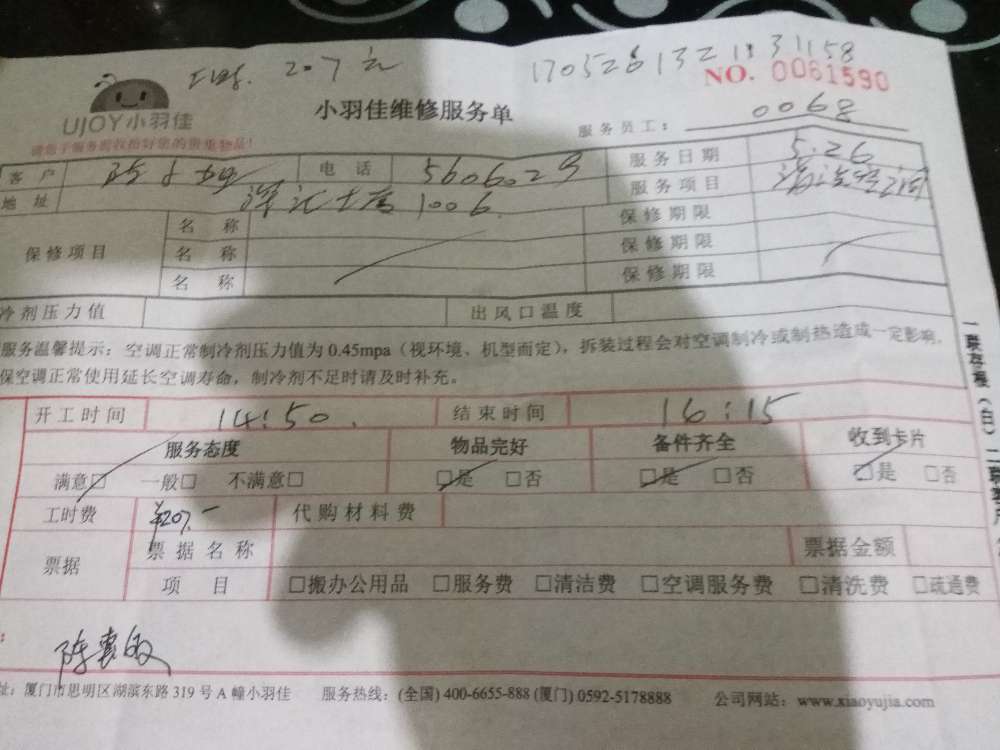 207元 170526132131158
NO. 0061590
UJOY小羽佳
小羽佳维修服务单
服务员工： 0068
请您于服务前收拾好您的贵重物品！
客户 陈小姐 电话 服务日期 5.26
地址 1006 服务项目
保修项目 名称 保修期限
名称 保修期限
名称 保修期限
冷剂压力值 出风口温度
服务温馨提示：空调正常制冷剂压力值为0.45mpa（视环境、机型而定），拆装过程会对空调制冷或制热造成一定影响，
保空调正常使用延长空调寿命，制冷剂不足时请及时补充。
开工时间 14:50. 结束时间 16:15
服务态度 物品完好 备件齐全 收到卡片
满意□ 一般□ 不满意□ □是 □否 □是 □否 □是 □否
工时费 ¥207.- 代购材料费
票据 票据名称 票据金额
项目 □搬办公用品 □服务费 □清洁费 □空调服务费 □清洗费 □疏通费
址：厦门市思明区湖滨东路319号A幢小羽佳 服务热线：(全国) 400-6655-888 (厦门) 0592-5178888 公司网站：www.xiaoyujia.com
一联存根（白）二联